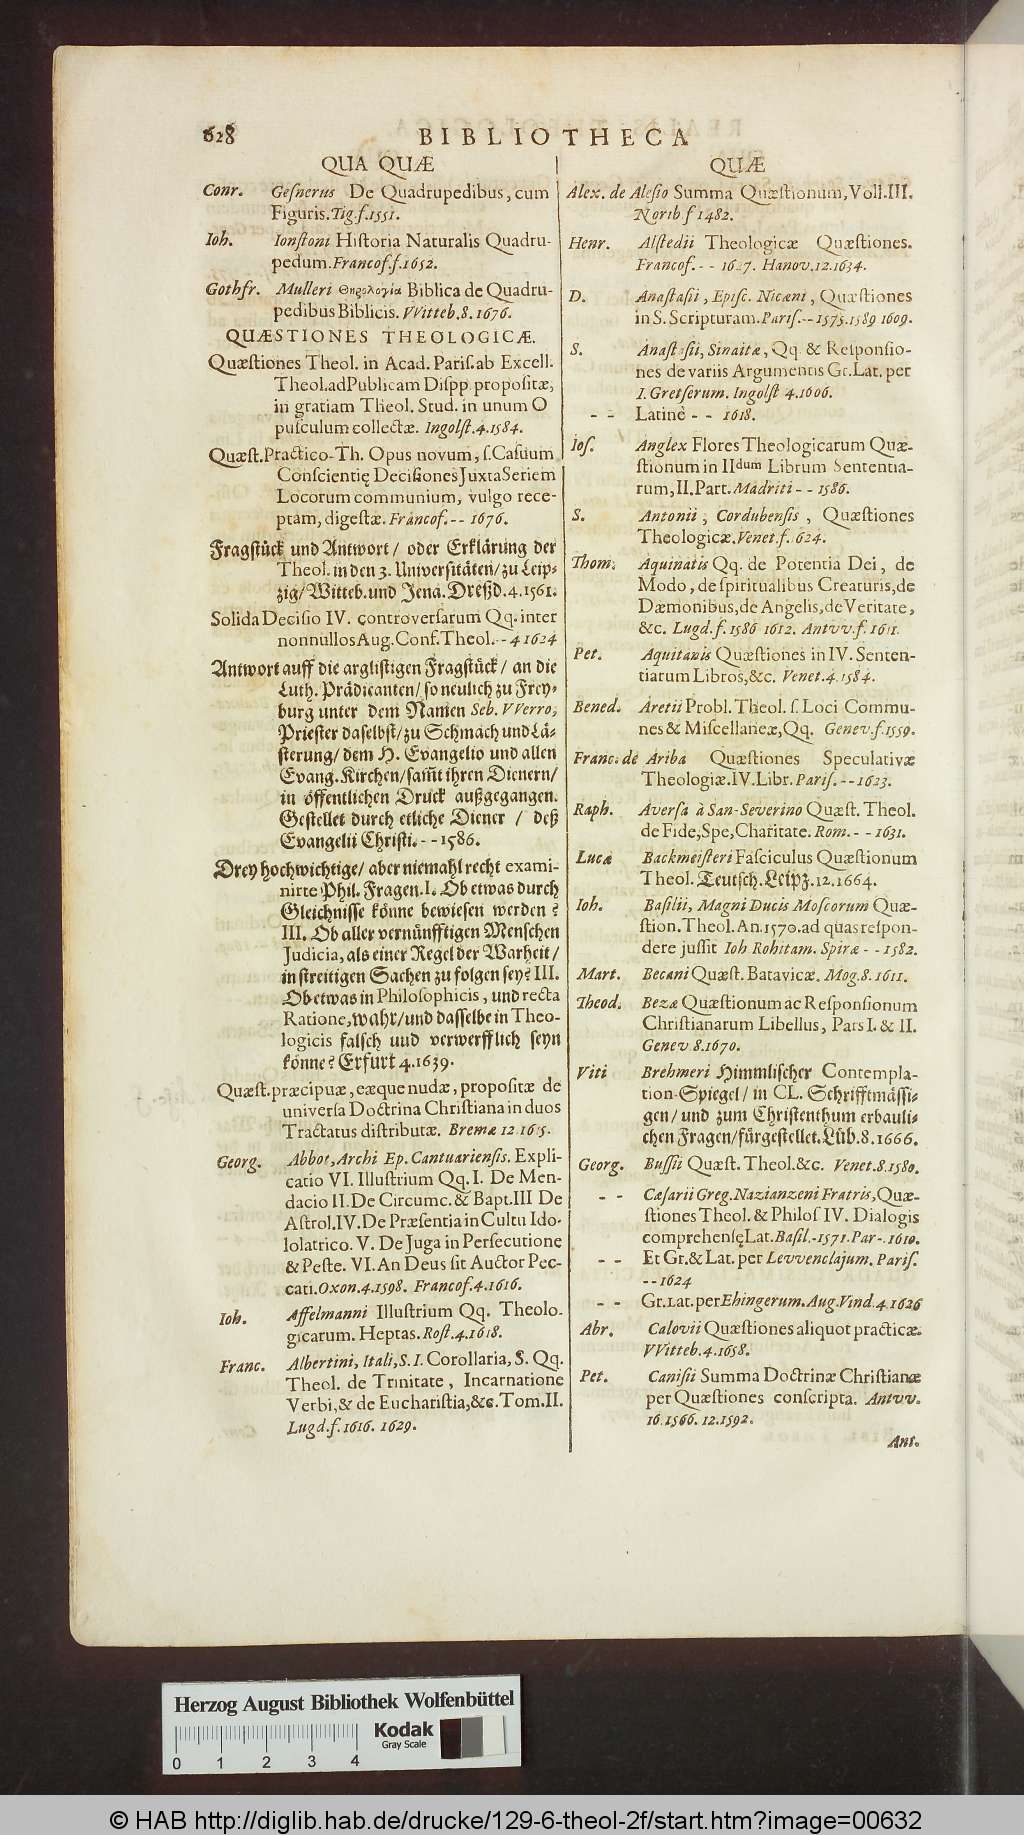 628
BIBLIOTHECA
QUA QUÆ
Conr. Geſnerus De Quadrupedibus, cum
Figuris. Tig. f. 1551.
Ioh. Ionſtoni Hiſtoria Naturalis Quadru-
pedum. Francof. f. 1652.
Gothfr. Mulleri Θηρολογία Biblica de Quadru-
pedibus Biblicis. VVitteb. 8. 1676.
QUÆSTIONES THEOLOGICÆ.
Quæſtiones Theol. in Acad. Pariſ. ab Excell.
Theol. ad Publicam Diſpp. propoſitæ,
in gratiam Theol. Stud. in unum O
puſculum collectæ. Ingolſt. 4. 1584.
Quæſt. Practico-Th. Opus novum, ſ. Caſuum
Conſcientię Deciſiones Juxta Seriem
Locorum communium, vulgo rece-
ptam, digeſtæ. Francof. -- 1676.
Fragſtück und Antwort / oder Erklärung der
Theol. in den 3. Univerſitäten / zu Leip-
zig / Witteb. und Jena. Dreßd. 4. 1561.
Solida Deciſio IV. controverſarum Qq. inter
nonnullos Aug. Conf. Theol. -- 4 1624
Antwort auff die argliſtigen Fragſtück / an die
Luth. Prädicanten / ſo neulich zu Frey-
burg unter dem Namen Seb. VVerro,
Prieſter daſelbſt / zu Schmach und Lä-
ſterung / dem H. Evangelio und allen
Evang. Kirchen / ſam̃t ihren Dienern /
in öffentlichen Druck außgegangen.
Geſtellet durch etliche Diener / deß
Evangelii Chriſti. -- 1586.
Drey hochwichtige / aber niemahl recht exami-
nirte Phil. Fragen. I. Ob etwas durch
Gleichniſſe könne bewieſen werden?
III. Ob aller vernünfftigen Menſchen
Judicia, als einer Regel der Warheit /
in ſtreitigen Sachen zu folgen ſey? III.
Ob etwas in Philoſophicis, und recta
Ratione, wahr / und daſſelbe in Theo-
logicis falſch uud verwerfflich ſeyn
könne? Erfurt 4. 1639.
Quæſt. præcipuæ, eæque nudæ, propoſitæ de
univerſa Doctrina Chriſtiana in duos
Tractatus diſtributæ. Bremæ 12 1615.
Georg. Abbot, Archi Ep. Cantuarienſis. Expli-
catio VI. Illuſtrium Qq. I. De Men-
dacio II. De Circumc. & Bapt. III De
Aſtrol. IV. De Præſentia in Cultu Ido-
lolatrico. V. De Juga in Perſecutione
& Peſte. VI. An Deus ſit Auctor Pec-
cati. Oxon. 4. 1598. Francof. 4. 1616.
Ioh. Affelmanni Illuſtrium Qq. Theolo-
gicarum. Heptas. Roſt. 4. 1618.
Franc. Albertini, Itali, S. I. Corollaria, S. Qq.
Theol. de Trinitate, Incarnatione
Verbi, & de Euchariſtia, &c. Tom. II.
Lugd. f. 1616. 1629.
QUÆ
Alex. de Aleſio Summa Quæſtionum, Voll. III.
Norib f 1482.
Henr. Alſtedii Theologicæ Quæſtiones.
Francof. -- 1627. Hanov. 12. 1634.
D. Anaſtaſii, Epiſc. Nicæni, Quæſtiones
in S. Scripturam. Pariſ. -- 1575. 1589 1609.
S. Anaſtaſii, Sinaitæ, Qq & Reſponſio-
nes de variis Argumentis Gr. Lat. per
I. Gretſerum. Ingolſt 4. 1606.
-- Latinè -- 1618.
Ioſ. Anglex Flores Theologicarum Quæ-
ſtionum in IIdum Librum Sententia-
rum, II. Part. Madriti -- 1586.
S. Antonii, Cordubenſis, Quæſtiones
Theologicæ. Venet. f. 1624.
Thom. Aquinatis Qq. de Potentia Dei, de
Modo, de ſpiritualibus Creaturis, de
Dæmonibus, de Angelis, de Veritate,
&c. Lugd. f. 1586 1612. Antvv. f. 1611.
Pet. Aquitanis Quæſtiones in IV. Senten-
tiarum Libros, &c. Venet. 4. 1584.
Bened. Aretii Probl. Theol. ſ. Loci Commu-
nes & Miſcellaneæ, Qq. Genev. f. 1559.
Franc. de Ariba Quæſtiones Speculativæ
Theologiæ. IV. Libr. Pariſ. -- 1623.
Raph. Averſa à San-Severino Quæſt. Theol.
de Fide, Spe, Charitate. Rom. -- 1631.
Lucæ Backmeiſteri Faſciculus Quæſtionum
Theol. Teutſch. Leipz. 12. 1664.
Ioh. Baſilii, Magni Ducis Moſcorum Quæ-
ſtion. Theol. An. 1570. ad quas reſpon-
dere juſſit Ioh Rohitam. Spiræ -- 1582.
Mart. Becani Quæſt. Batavicæ. Mog. 8. 1611.
Theod. Bezæ Quæſtionum ac Reſponſionum
Chriſtianarum Libellus, Pars I. & II.
Genev 8. 1670.
Viti Brehmeri Himmliſcher Contempla-
tion-Spiegel / in CL. Schrifftmäſſi-
gen / und zum Chriſtenthum erbauli-
chen Fragen / fürgeſtellet. Lüb. 8. 1666.
Georg. Buſſii Quæſt. Theol. &c. Venet. 8. 1580.
-- Cæſarii Greg. Nazianzeni Fratris, Quæ-
ſtiones Theol. & Philoſ IV. Dialogis
comprehenſę Lat. Baſil. -1571. Par-. 1610.
-- Et Gr. & Lat. per Levvenclajum. Pariſ.
-- 1624
-- Gr. Lat. per Ehingerum. Aug. Vind. 4. 1626
Abr. Calovii Quæſtiones aliquot practicæ.
VVitteb. 4. 1658.
Pet. Caniſii Summa Doctrinæ Chriſtianæ
per Quæſtiones conſcripta. Antvv.
16. 1566. 12. 1592.
Ant.
Herzog August Bibliothek Wolfenbüttel
Kodak
Gray Scale
0 1 2 3 4
© HAB http://diglib.hab.de/drucke/129-6-theol-2f/start.htm?image=00632